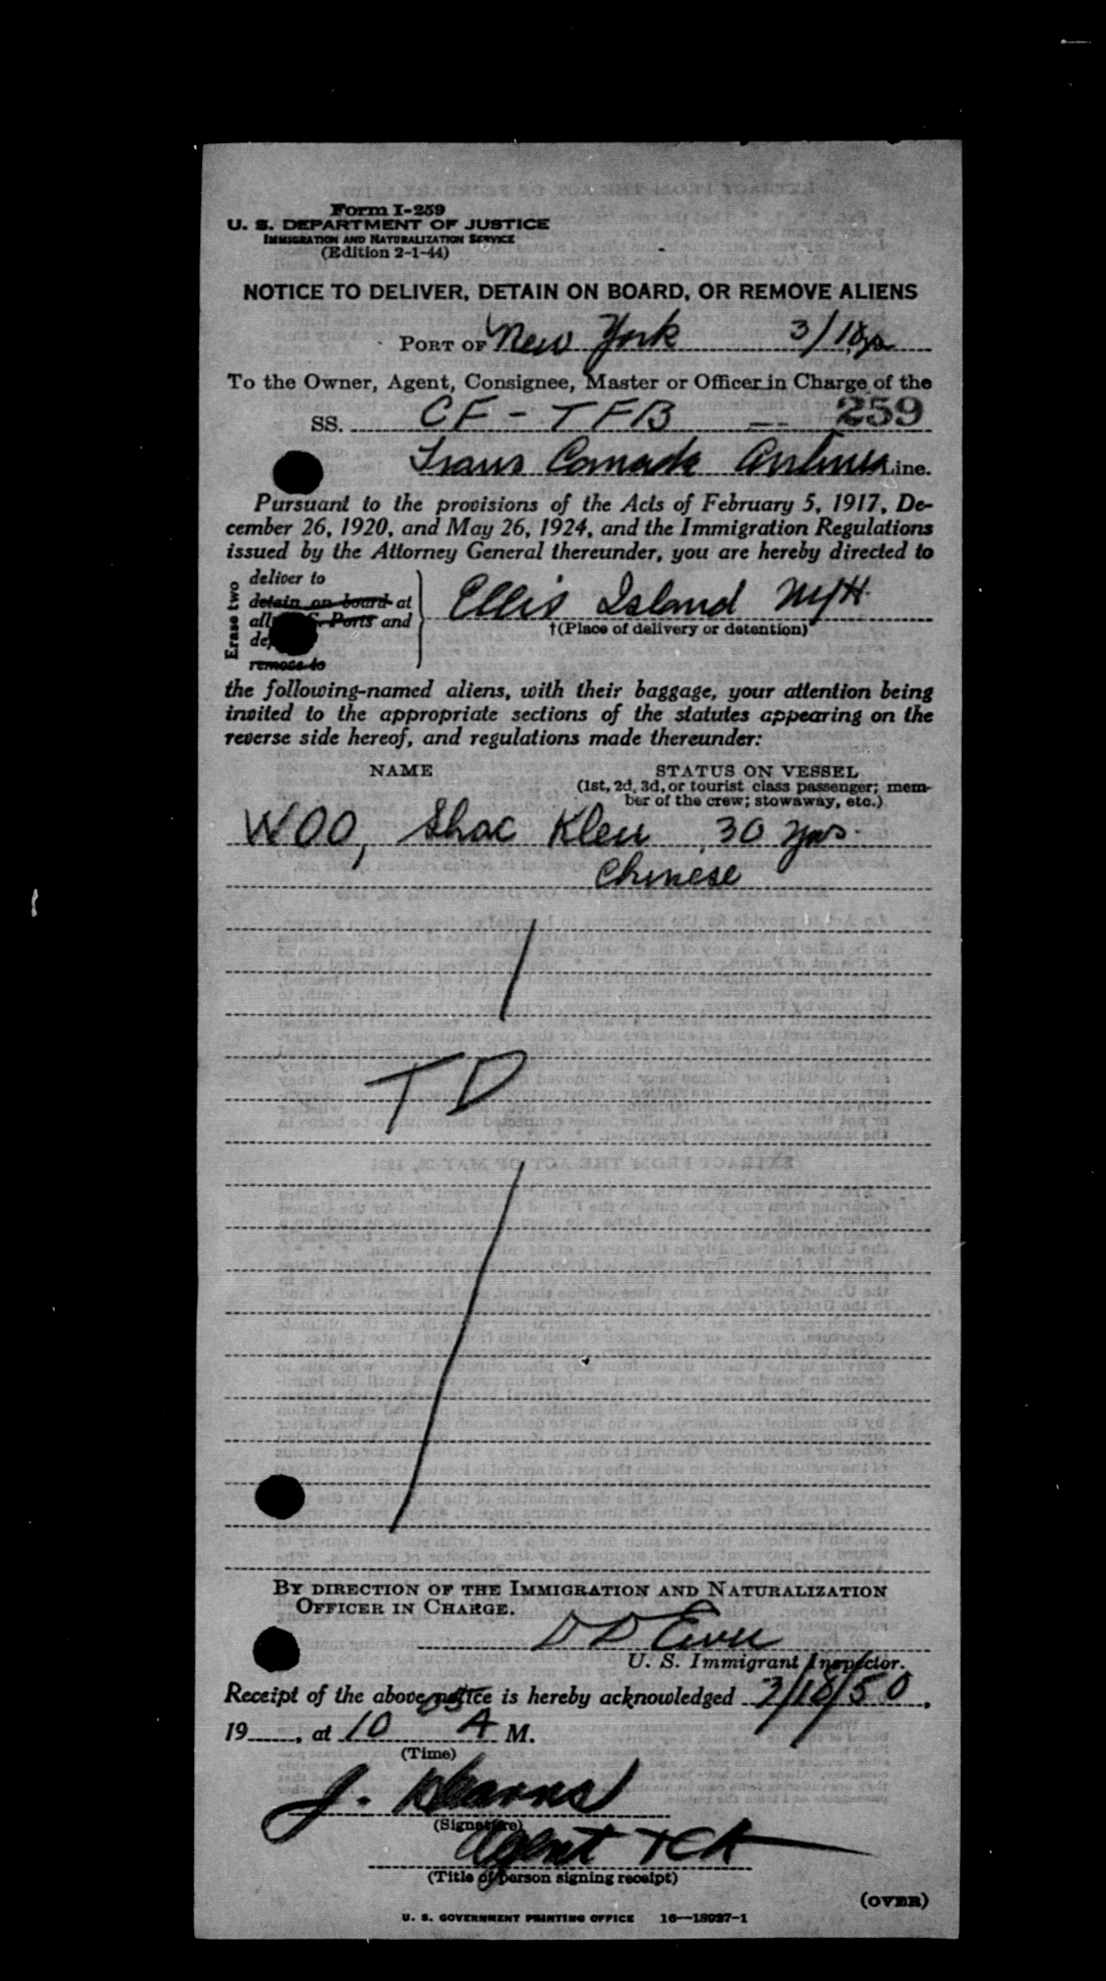 Form I-259
U. S. DEPARTMENT OF JUSTICE
IMMIGRATION AND NATURALIZATION SERVICE
(Edition 2-1-44)
NOTICE TO DELIVER, DETAIN ON BOARD, OR REMOVE ALIENS
PORT OF New York 3/18
To the Owner, Agent, Consignee, Master or Officer in Charge of the
SS. CF-TFB -- 259
Trans Canada Airlines Line.
Pursuant to the provisions of the Acts of February 5, 1917, De-
cember 26, 1920, and May 26, 1924, and the Immigration Regulations
issued by the Attorney General thereunder, you are hereby directed to
Erase two
deliver to
detain on board at
all Ports and
remove to
Ellis Island NYH
†(Place of delivery or detention)
the following-named aliens, with their baggage, your attention being
invited to the appropriate sections of the statutes appearing on the
reverse side hereof, and regulations made thereunder:
NAME STATUS ON VESSEL
(1st, 2d, 3d, or tourist class passenger; mem-
ber of the crew; stowaway, etc.)
WOO, Shac Kleu 30 yrs.
Chinese
TD
BY DIRECTION OF THE IMMIGRATION AND NATURALIZATION
OFFICER IN CHARGE.
D D
U. S. Immigrant Inspector.
Receipt of the above notice is hereby acknowledged 3/18/50,
19____, at 10 55 A M.
(Time)
J. Hearns
(Signature)
Agent TCA
(Title of person signing receipt)
(OVER)
U. S. GOVERNMENT PRINTING OFFICE 16—18037-1